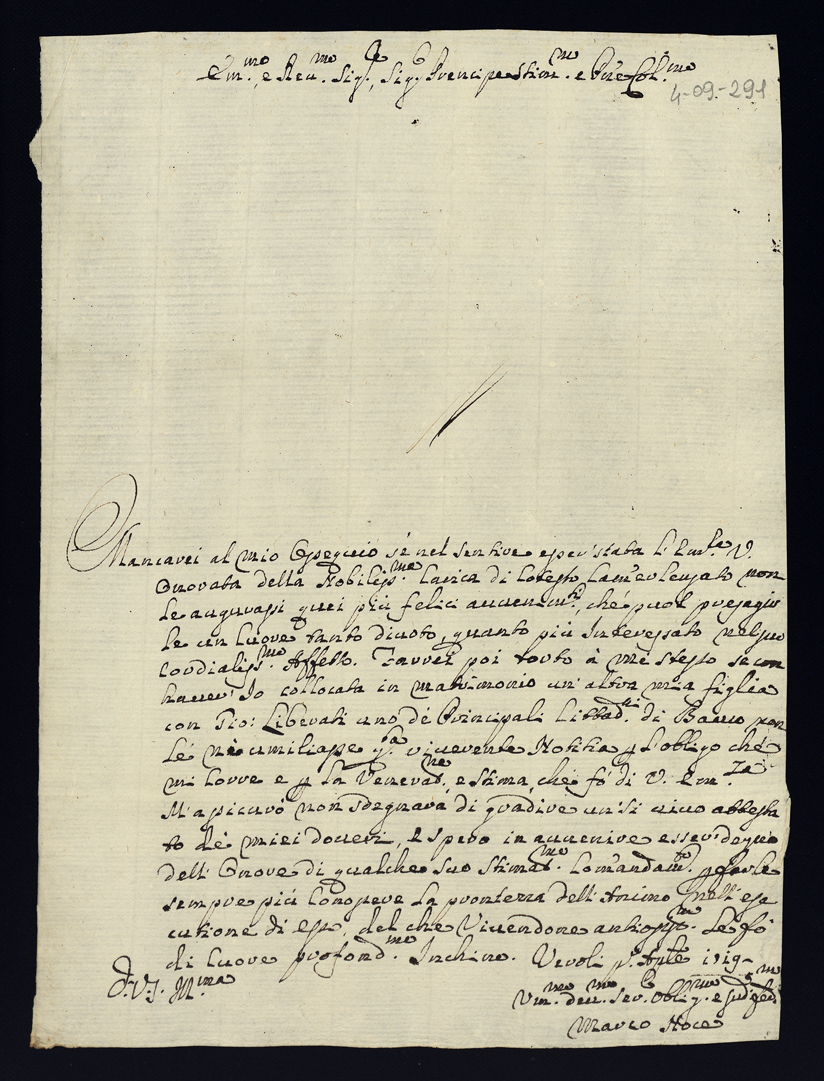 Em.mo, e Reu.mo Sig.re, Sig.r Prencipe Stim.mo e P.rne Col.mo
4-09-291
Mancarei al mio Ossequio sé nel sentire esser' stata l'Em.za V.
Onorata della Nobiliss.ma Carica di cotesto Camerlengato non
le augurassi quei più felici auuenim.ti, ché puol presagir
le un Cuore tanto diuoto, quanto più Interessato nel suo
Cordialiss.mo Affetto. Farrei poi torto à mé stesso se con
hauer' Io collocata in matrimonio un' altra mia figlia
con Gio: Liberati uno dé Principali Cittad.ni di Bauco non
Lé n'umiliasse q.ta riuerente Notitia p L'obligo ché
mi Corre e p La Venerad.ne e Stima, che fò di V. Em.za
M'assicuro non sdegnarà di gradire un' Si uiuo attesta
to dé miei doueri, e spero in auuenire esser' degno
dell' Onore di qualche suo Stimat.mo Comandam.to p farle
sempre più Conoscere La prontezza dell' Animo nell' ese
cutione di essi, del che Viuendone ansiosiss.mo Le fò
di Cuore profond.mo Inchino. Veroli p.o Aple 1719
D. V. S. Ill.ma
Um.mo deu.mo Ser. Obblig.mo
Marco Noce